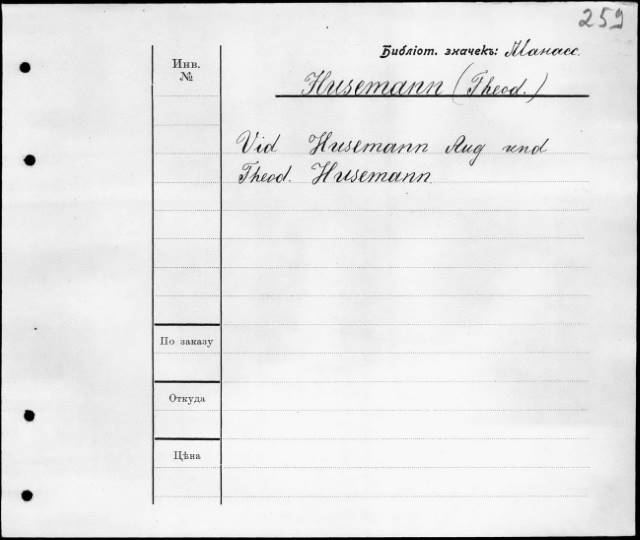 259
Библіот. значекъ: Манасс.
Инв.
№
Husemann (Theod.)
Vid Husemann Aug und
Theod. Husemann
По заказу
Откуда
Цѣна